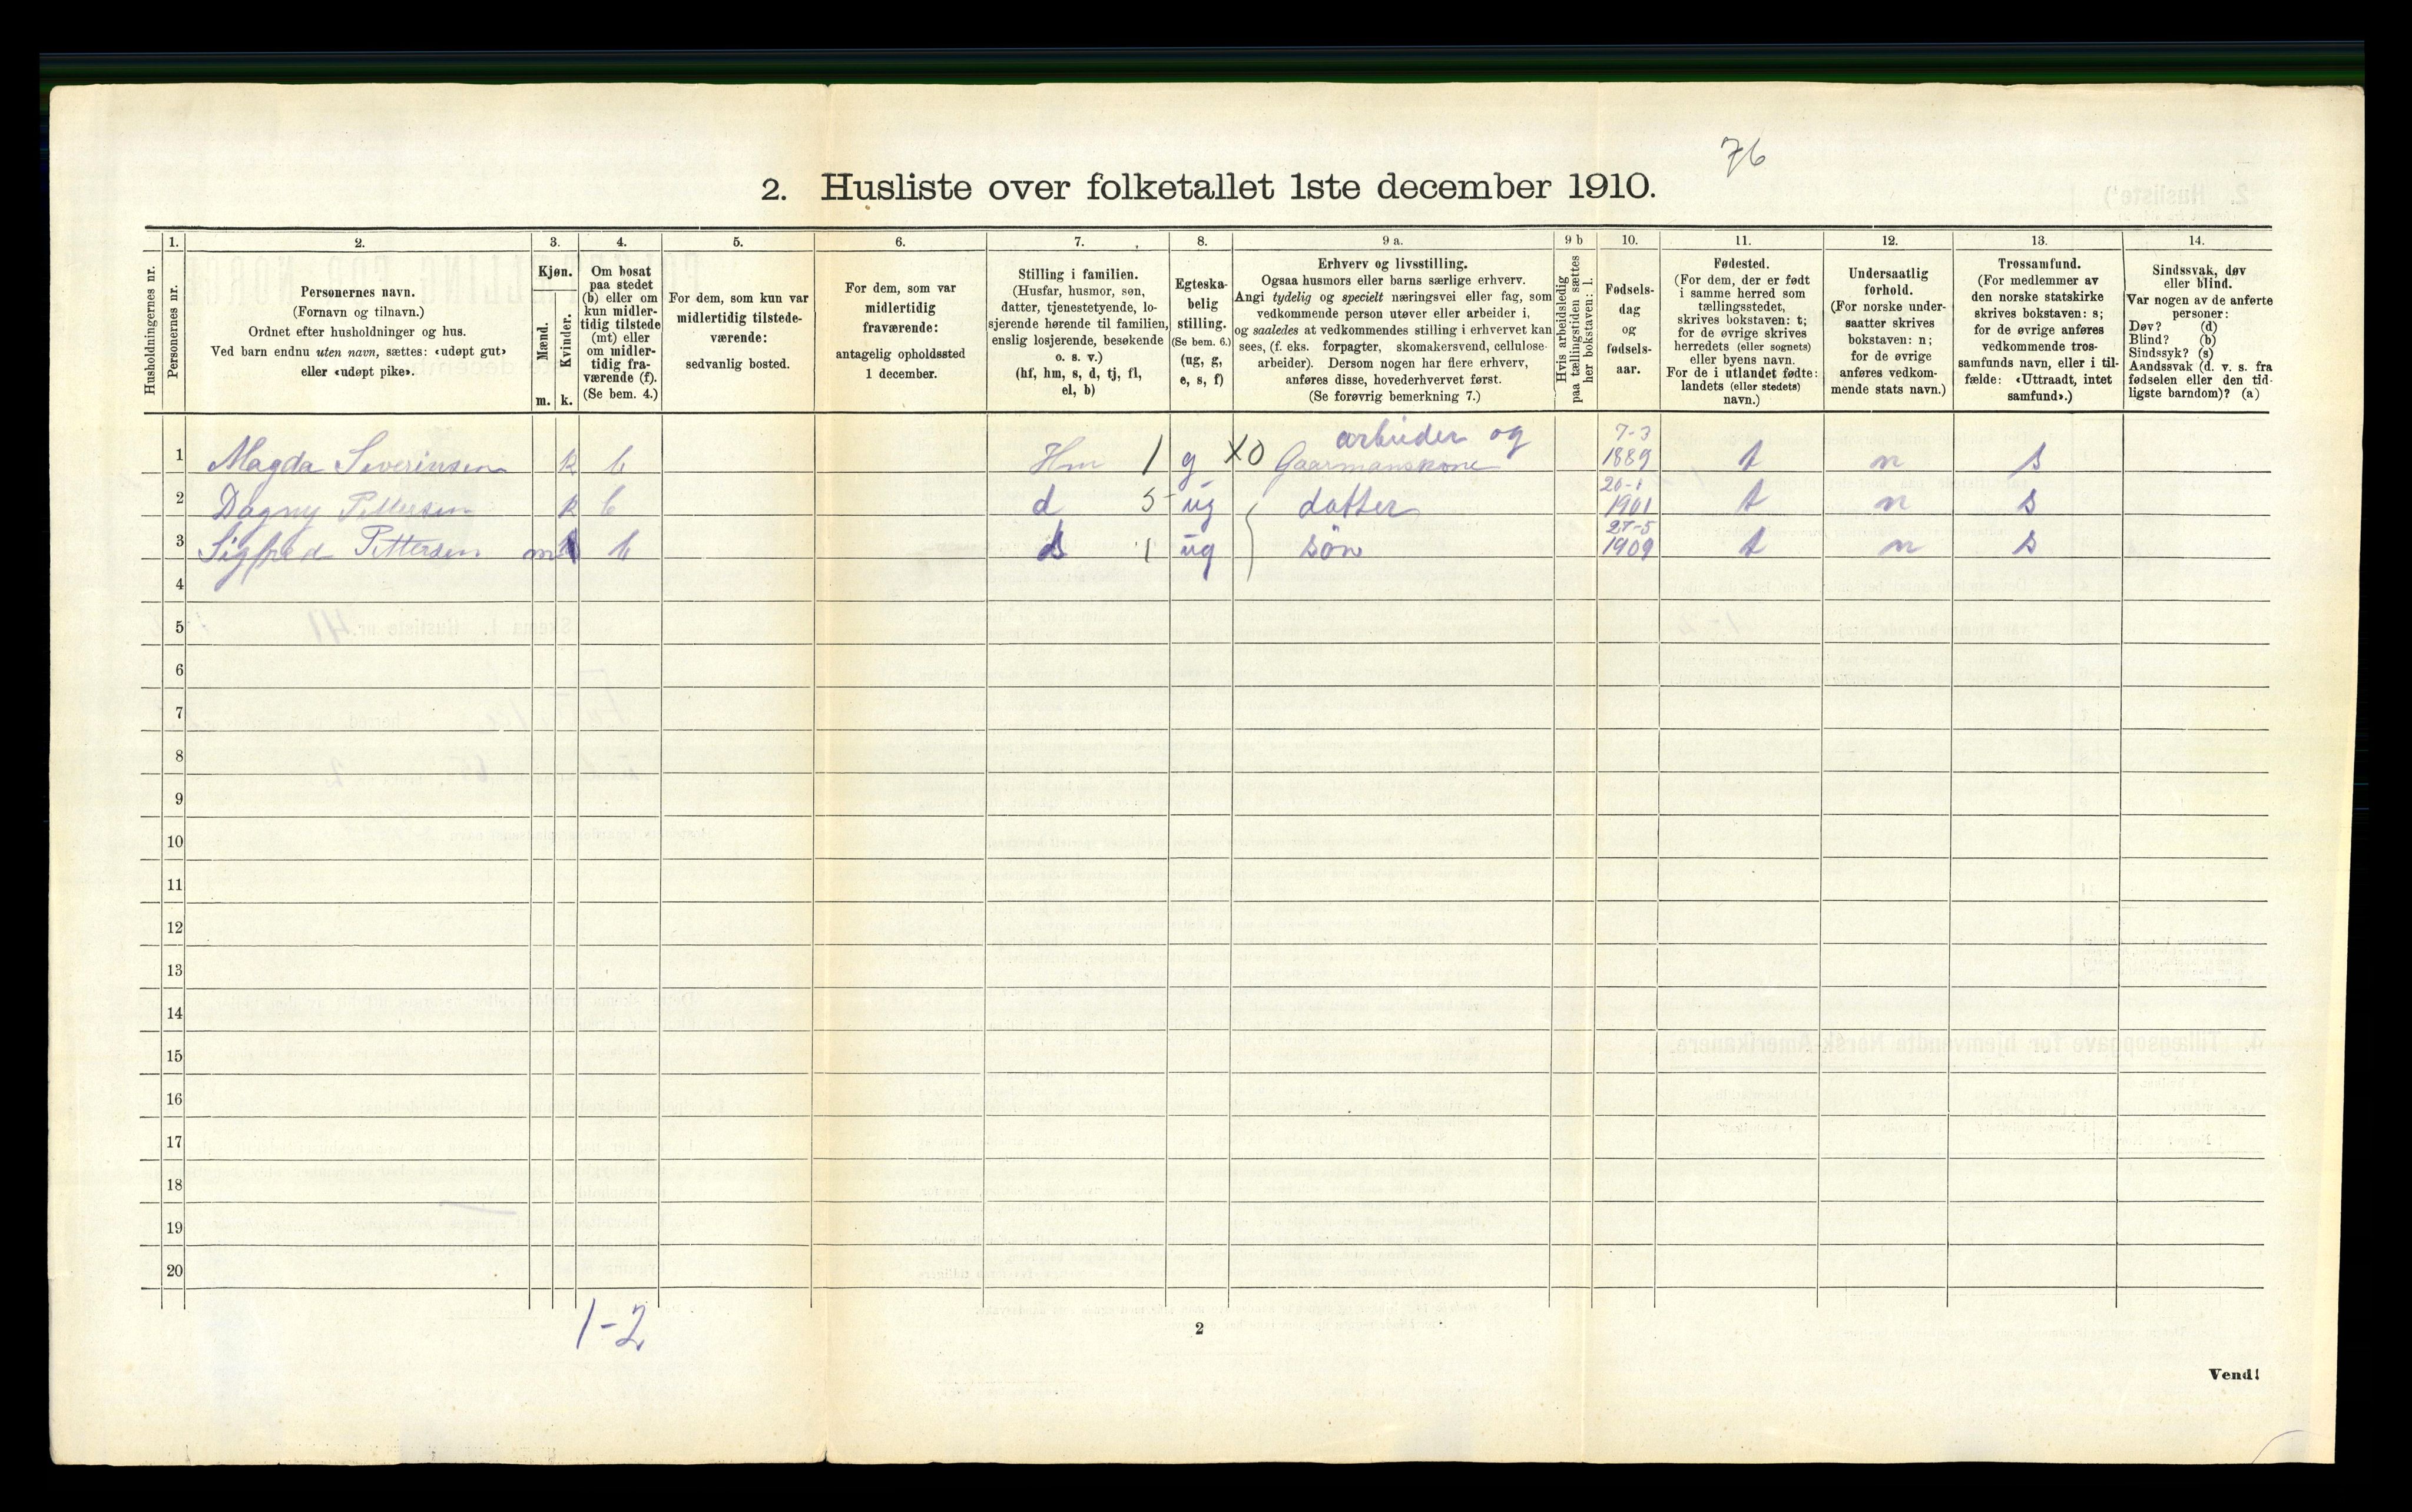 76
2. Husliste over folketallet 1ste december 1910.
1. 2. 3. 4. 5. 6. 7. 8. 9 a. 9 b 10. 11. 12. 13. 14.
Husholdningernes nr.
Personernes nr.
Personernes navn.
(Fornavn og tilnavn.)
Ordnet efter husholdninger og hus.
Ved barn endnu uten navn, sættes: «udøpt gut»
eller «udøpt pike».
Kjøn.
Mænd.
Kvinder.
m. k.
Om bosat
paa stedet
(b) eller om
kun midler-
tidig tilstede
(mt) eller
om midler-
tidig fra-
værende (f).
(Se bem. 4.)
For dem, som kun var
midlertidig tilstede-
værende:
sedvanlig bosted.
For dem, som var
midlertidig
fraværende:
antagelig opholdssted
1 december.
Stilling i familien.
(Husfar, husmor, søn,
datter, tjenestetyende, lo-
sjerende hørende til familien,
enslig losjerende, besøkende
o. s. v.)
(hf, hm, s, d, tj, fl,
el, b)
Egteska-
belig
stilling.
(Se bem. 6.)
(ug, g,
e, s, f)
Erhverv og livsstilling.
Ogsaa husmors eller barns særlige erhverv.
Angi tydelig og specielt næringsvei eller fag, som
vedkommende person utøver eller arbeider i,
og saaledes at vedkommendes stilling i erhvervet kan
sees, (f. eks. forpagter, skomakersvend, cellulose-
arbeider). Dersom nogen har flere erhverv,
anføres disse, hovederhvervet først.
(Se forøvrig bemerkning 7.)
Hvis arbeidsledig
paa tællingstiden sættes
her bokstaven: l.
Fødsels-
dag
og
fødsels-
aar.
Fødested.
(For dem, der er født
i samme herred som
tællingsstedet,
skrives bokstaven: t;
for de øvrige skrives
herredets (eller sognets)
eller byens navn.
For de i utlandet fødte:
landets (eller stedets)
navn.)
Undersaatlig
forhold.
(For norske under-
saatter skrives
bokstaven: n;
for de øvrige
anføres vedkom-
mende stats navn.)
Trossamfund.
(For medlemmer av
den norske statskirke
skrives bokstaven: s;
for de øvrige anføres
vedkommende tros-
samfunds navn, eller i til-
fælde: «Uttraadt, intet
samfund».)
Sindssvak, døv
eller blind.
Var nogen av de anførte
personer:
Døv? (d)
Blind? (b)
Sindssyk? (s)
Aandssvak (d. v. s. fra
fødselen eller den tid-
ligste barndom)? (a)
arbeider og 7-3
1 Magda Severinsen k b Hm 1 g X0 Gaarmanskone 1889 t n s
20-1
2 Dagny Pettersen k b d 5 ug datter 1901 t n s
27-5
3 Sigfred Pettersen m b s 1 ug søn 1909 t n s
4
5
6
7
8
9
10
11
12
13
14
15
16
17
18
19
20
1-2
2
Vend!